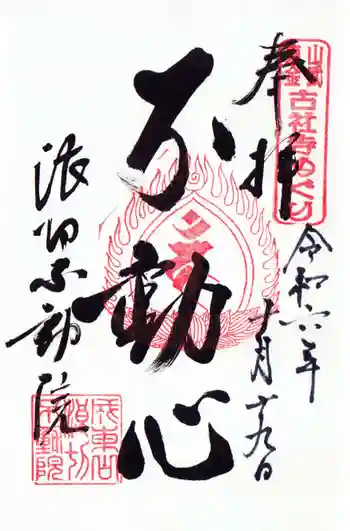 山武
古社寺めぐり
奉拝
令和六年
十月十九日
不動心
浪切不動院
成東山
浪切
不動院